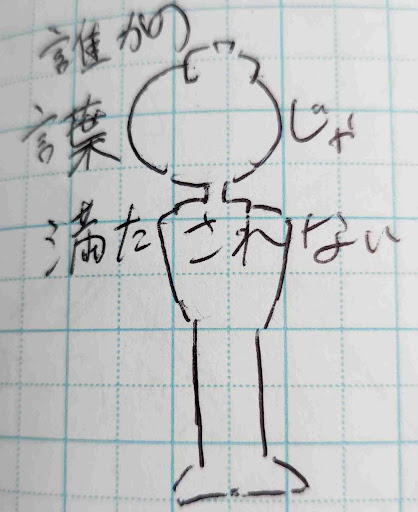 誰かの
言葉じゃ
満たされない